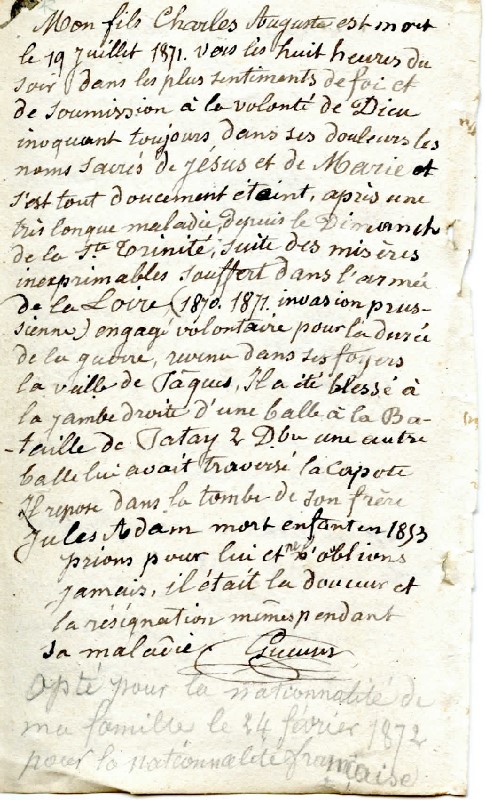 Mon fils Charles Auguste est mort
le 19 juillet 1871. vers les huit heures du
soir dans les plus sentiments de foi et
de soumission à la volonté de Dieu
invoquant toujours dans ses douleurs les
noms sacrés de Jésus et de Marie et
s'est tout doucement éteint, après une
très longue maladie, depuis le Dimanch
de la Ste Trinité, suite des misères
inexprimables souffert dans l'armée
de la Loire, (1870. 1871. invasion prus-
sienne) engagé volontaire pour la durée
de la guerre, revenu dans ses foyers
la veille de Pâques, Il a été blessé à
la jambe droite d'une balle à la Ba-
taille de Patay 2 Dbre une autre
balle lui avait traversé la capote
Il repose dans la tombe de son frère
Jules Adam mort enfant en 1853
prions pour lui et ne l'oblions
jamais, il était la douceur et
la résignation mêmes pendant
sa maladie
Opté pour la nationnalité de
ma famille le 24 février 1872
pour la nationnalité française